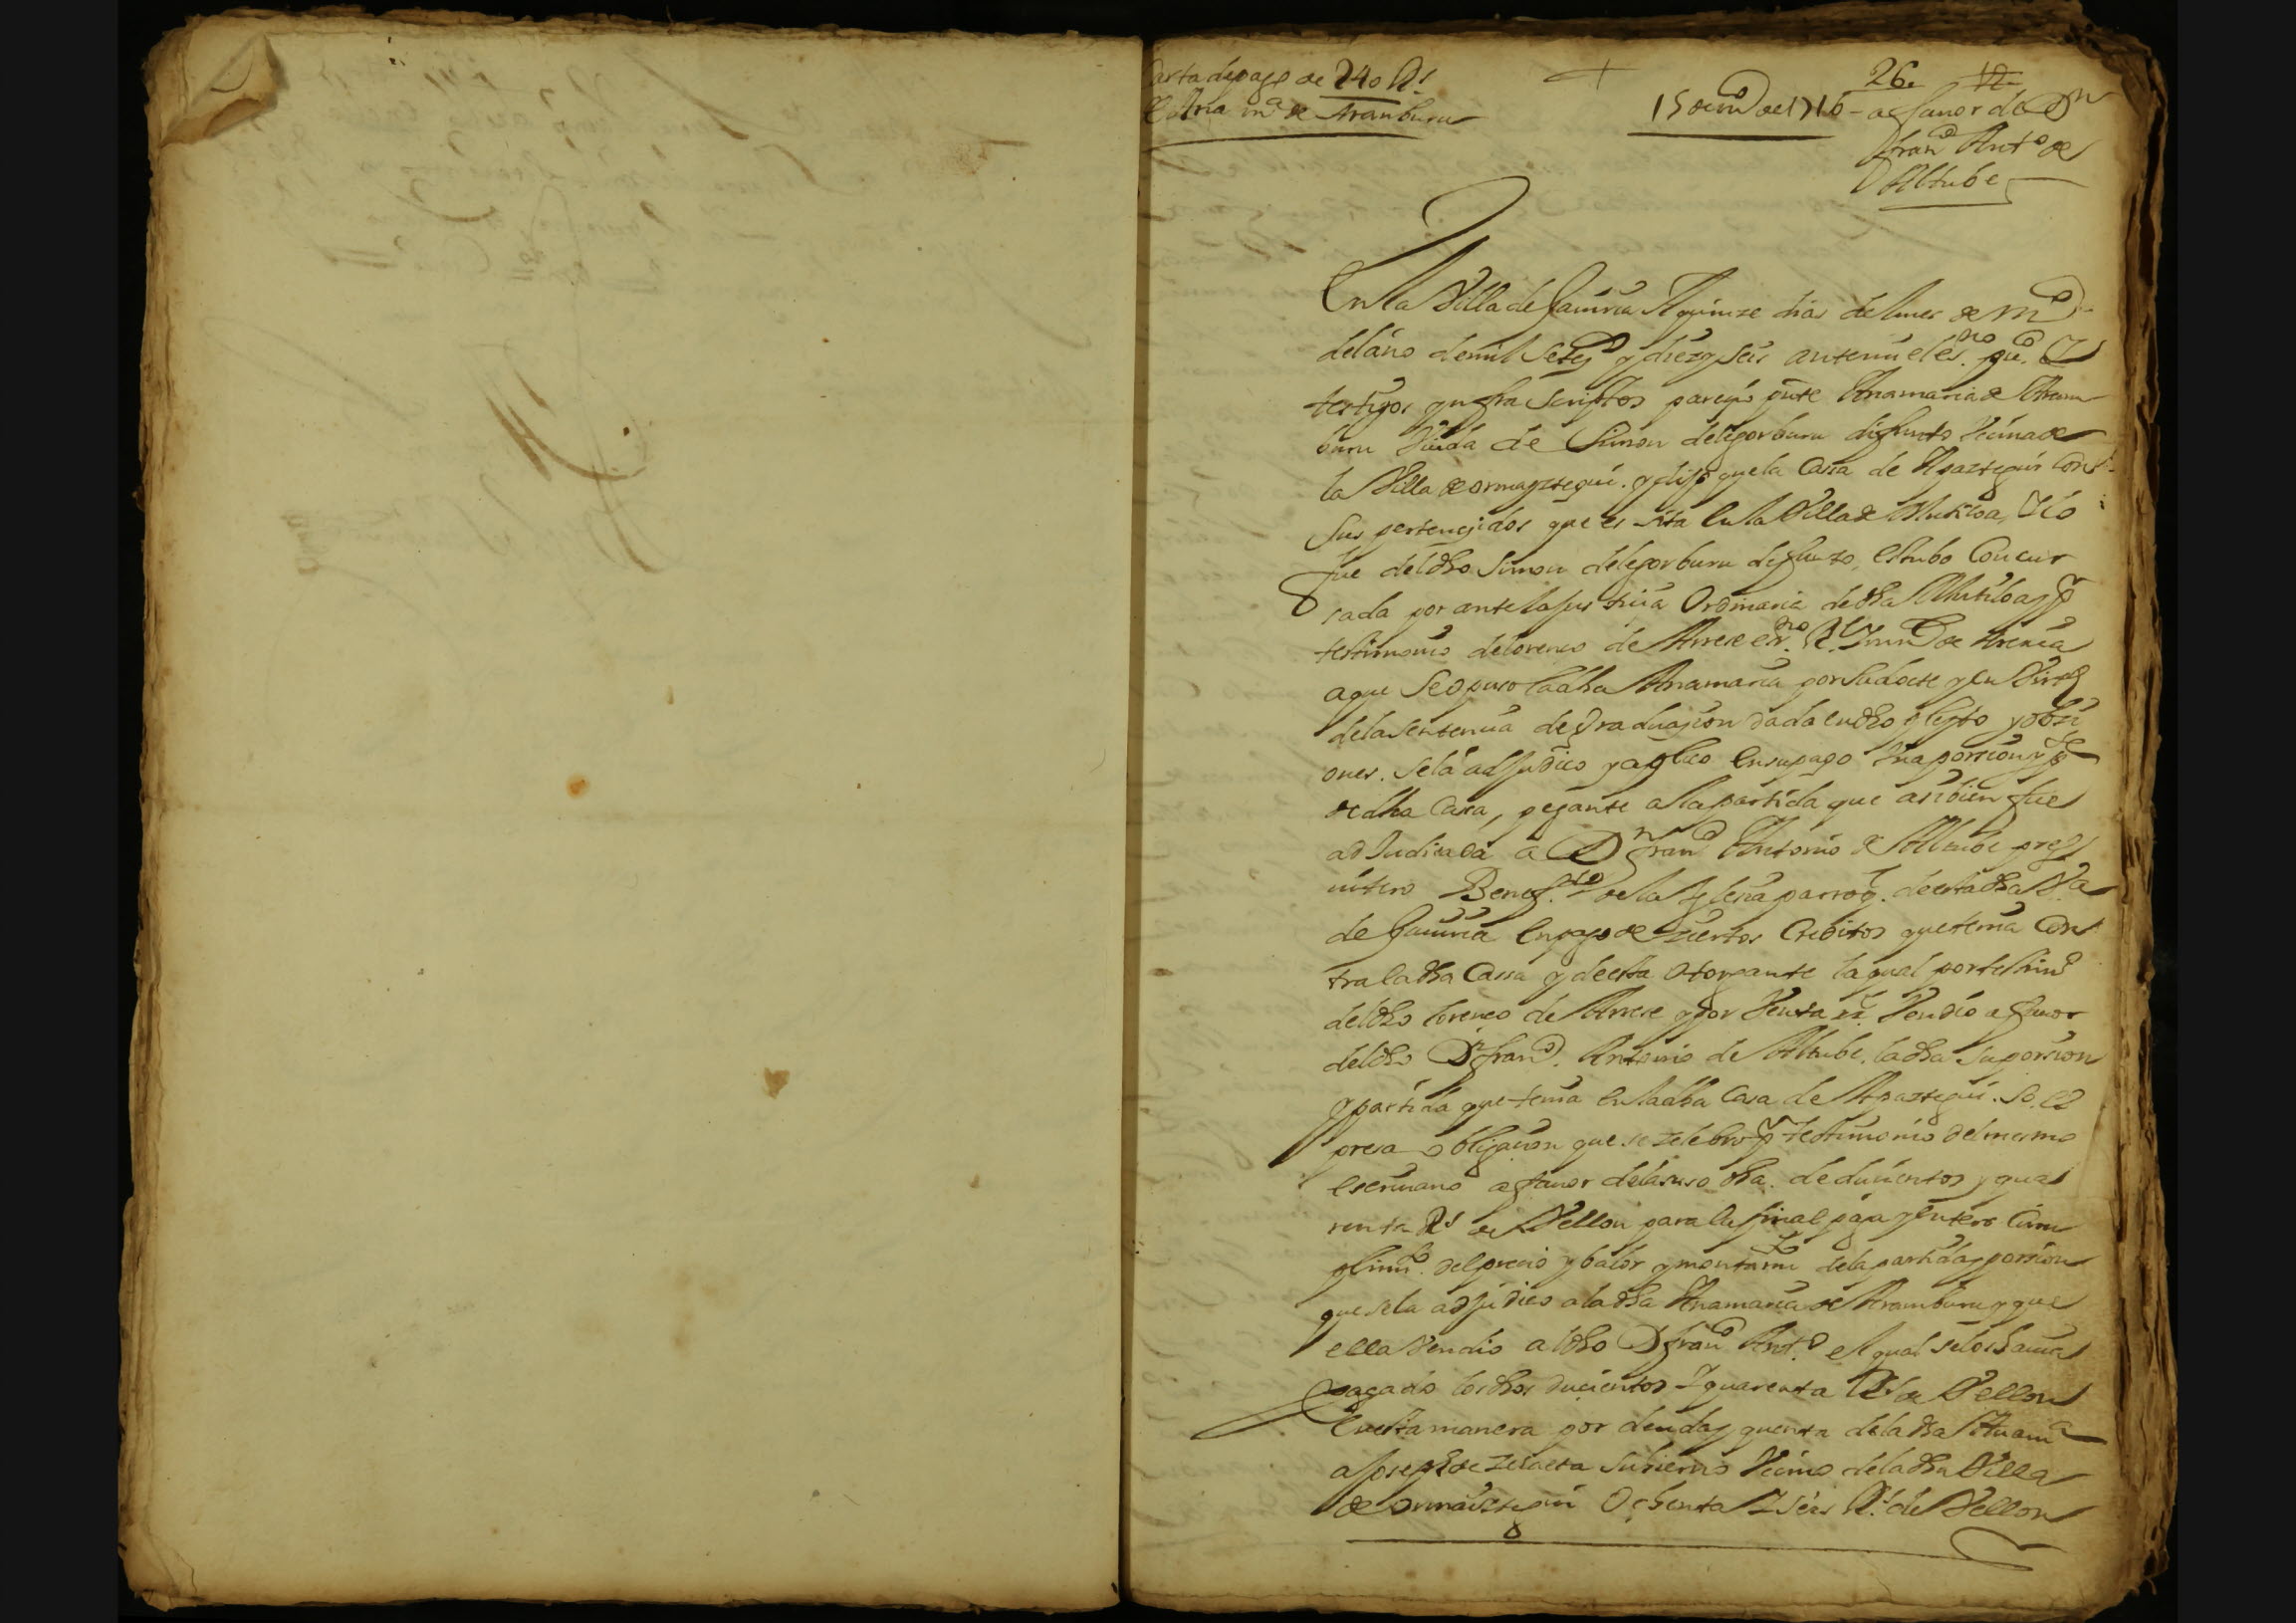 Carta de pago de 240 Rs
26
12
15 de mço de 1716 - a fauor de Dn
Franco Anto de
Altube
de Ana ma de Aramburu
En la Villa de Gauiria A quinze dias del mes de mço
del año de mil setecos y diez y seis ante mi el esno puco y
testigos ynfra scriptos pareçio pnte Ana maria de Aram
buru Viuda de Simon de legorburu difunto Vecina de
la Villa de ormayztegui. y dijo que la Cassa de Apaztegui Con
sus perteneçidos que es sita en la Villa de Mutiloa,
fue del dho Simon de legorburu difunto, estubo Concur
sada por ante la Justicia Ordinaria de dha Mutiloa y pr
testimonio de lorenco de Arrese esno Rl
a que se opuso la dha Ana maria por su dote y en Virtd
de la sentencia de Graduaçion dada en dho pleyto y
ones. se la adjudico y aplico en su pago Vna porcion y pte
de dha Casa, pegante a la partida que asi bien fue
adJudicada a Dn Franco Antonio de Altube pres
uitero Benefdo de la Yglesia parroql. de esta dha Va
de Gauiria en pago de ziertos Creditos que tenia Con
tra la dha Cassa y de esta otorgante la qual por testimo
del dho lorenco de Arrese y por Venta Rl. Vendio a fauor
del dho Dn Franco. Antonio de Altube. la dha su porcion
y partida que tenia en la dha Casa de Apaztegui. so ex
presa obligacion que se zelebro pr testimonio del mesmo
escriuano a fauor de la suso dha. de ducientos y qua
renta Rs de Vellon para la final paga y entero Cum
plimto. del precio y balor y montamto de la partida y porcion
que se la adjudico a la dha Ana maria de Aramburu y que
ella Vendio al dho Dn Franco Anto el qual se los hauia
pagado los dhos ducientos y quarenta Rs de Vellon
en esta manera por deuda y quenta de la dha Ana ma
a Joseph de su hierno Vecino de la dha Villa
de ormaiztegui Ochenta y seis Rs de Vellon